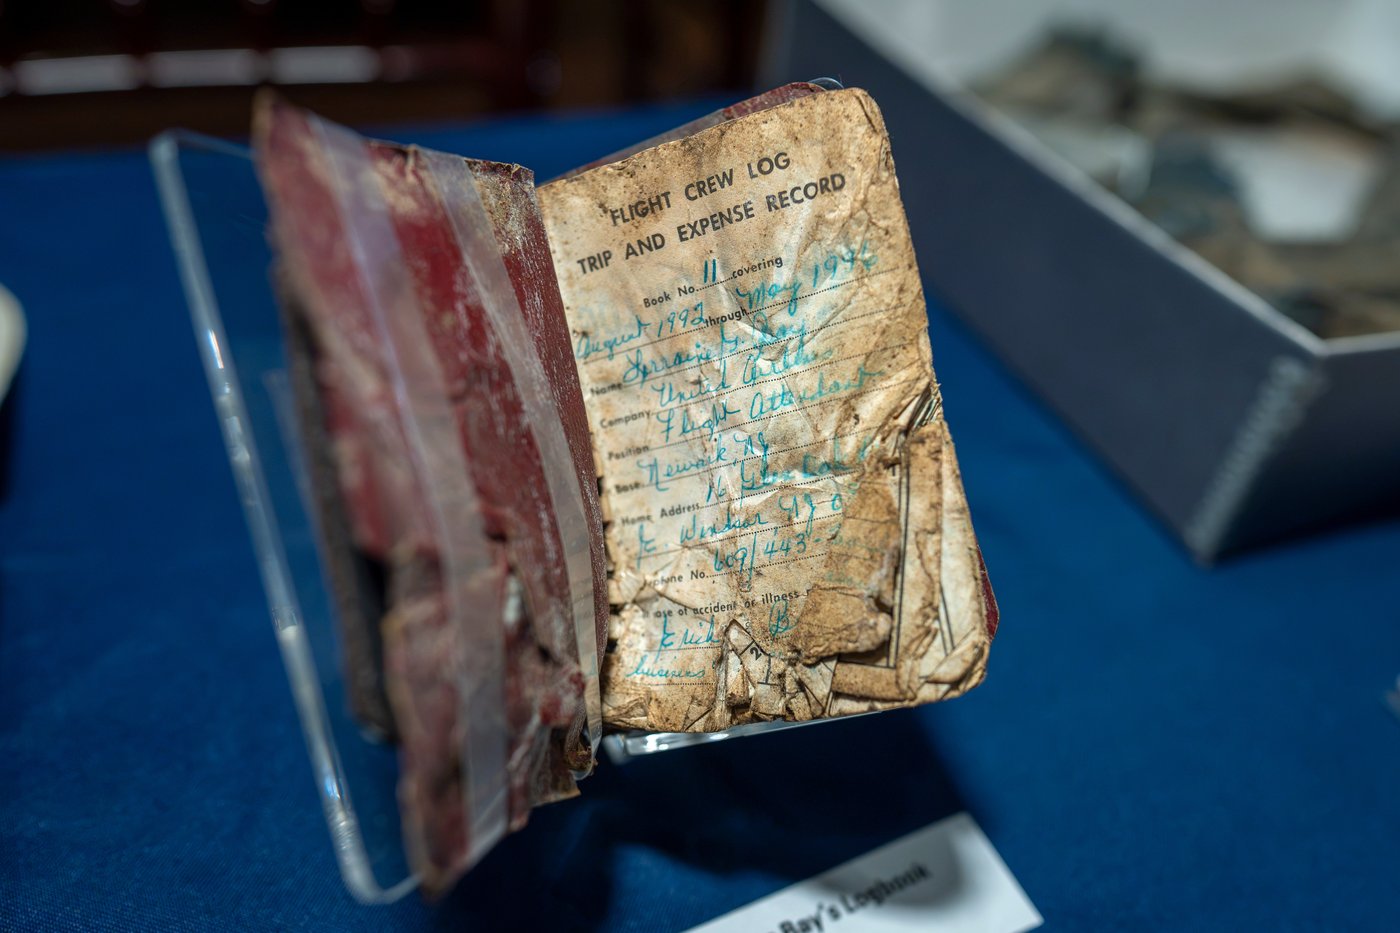 FLIGHT CREW LOG
TRIP AND EXPENSE RECORD
Book No. 11 covering
August 1992 through May 1996
Name Lorraine G. Bay
Company United Airlines
Position Flight Attendant
Base Newark, NJ
Home Address 16
E. Windsor NJ 0
phone No. 609/443-
ase of accident or illness
Erich B
business
2
Bay's Logbook